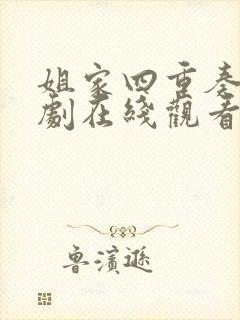 姐家四重奏
劇在綫觀看
魯濱遜